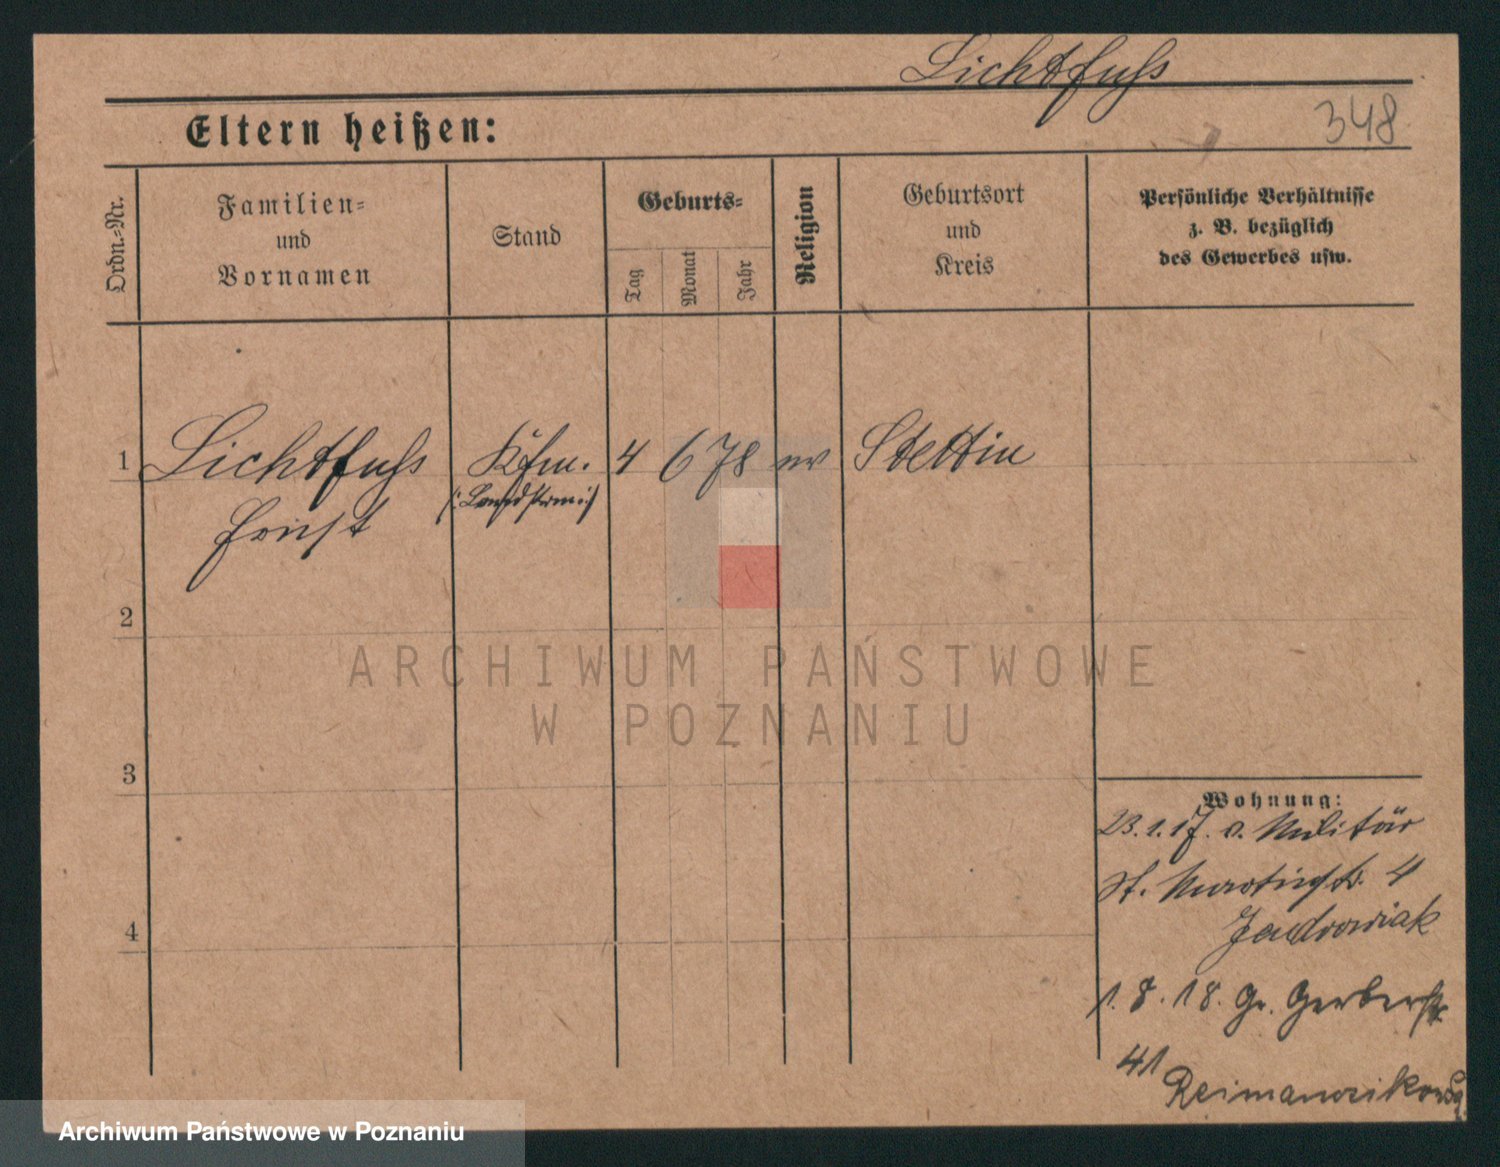 Lichtfuss
348
Eltern heißen:
Ordn.=Nr.
Familien=
und
Vornamen
Stand
Geburts=
Tag
Monat
Jahr
Religion
Geburtsort
und
Kreis
Persönliche Verhältnisse
z. B. bezüglich
des Gewerbes usw.
1 Lichtfuss Kfm. 4 6 78 ev Stettin
Ernst
2
ARCHIWUM PAŃSTWOWE
W POZNANIU
3
Wohnung:
23. 1. 17. v. Militär
St. Martinstr. 4
4
1. 8. 18. Gr. Gerberstr
41
Archiwum Państwowe w Poznaniu